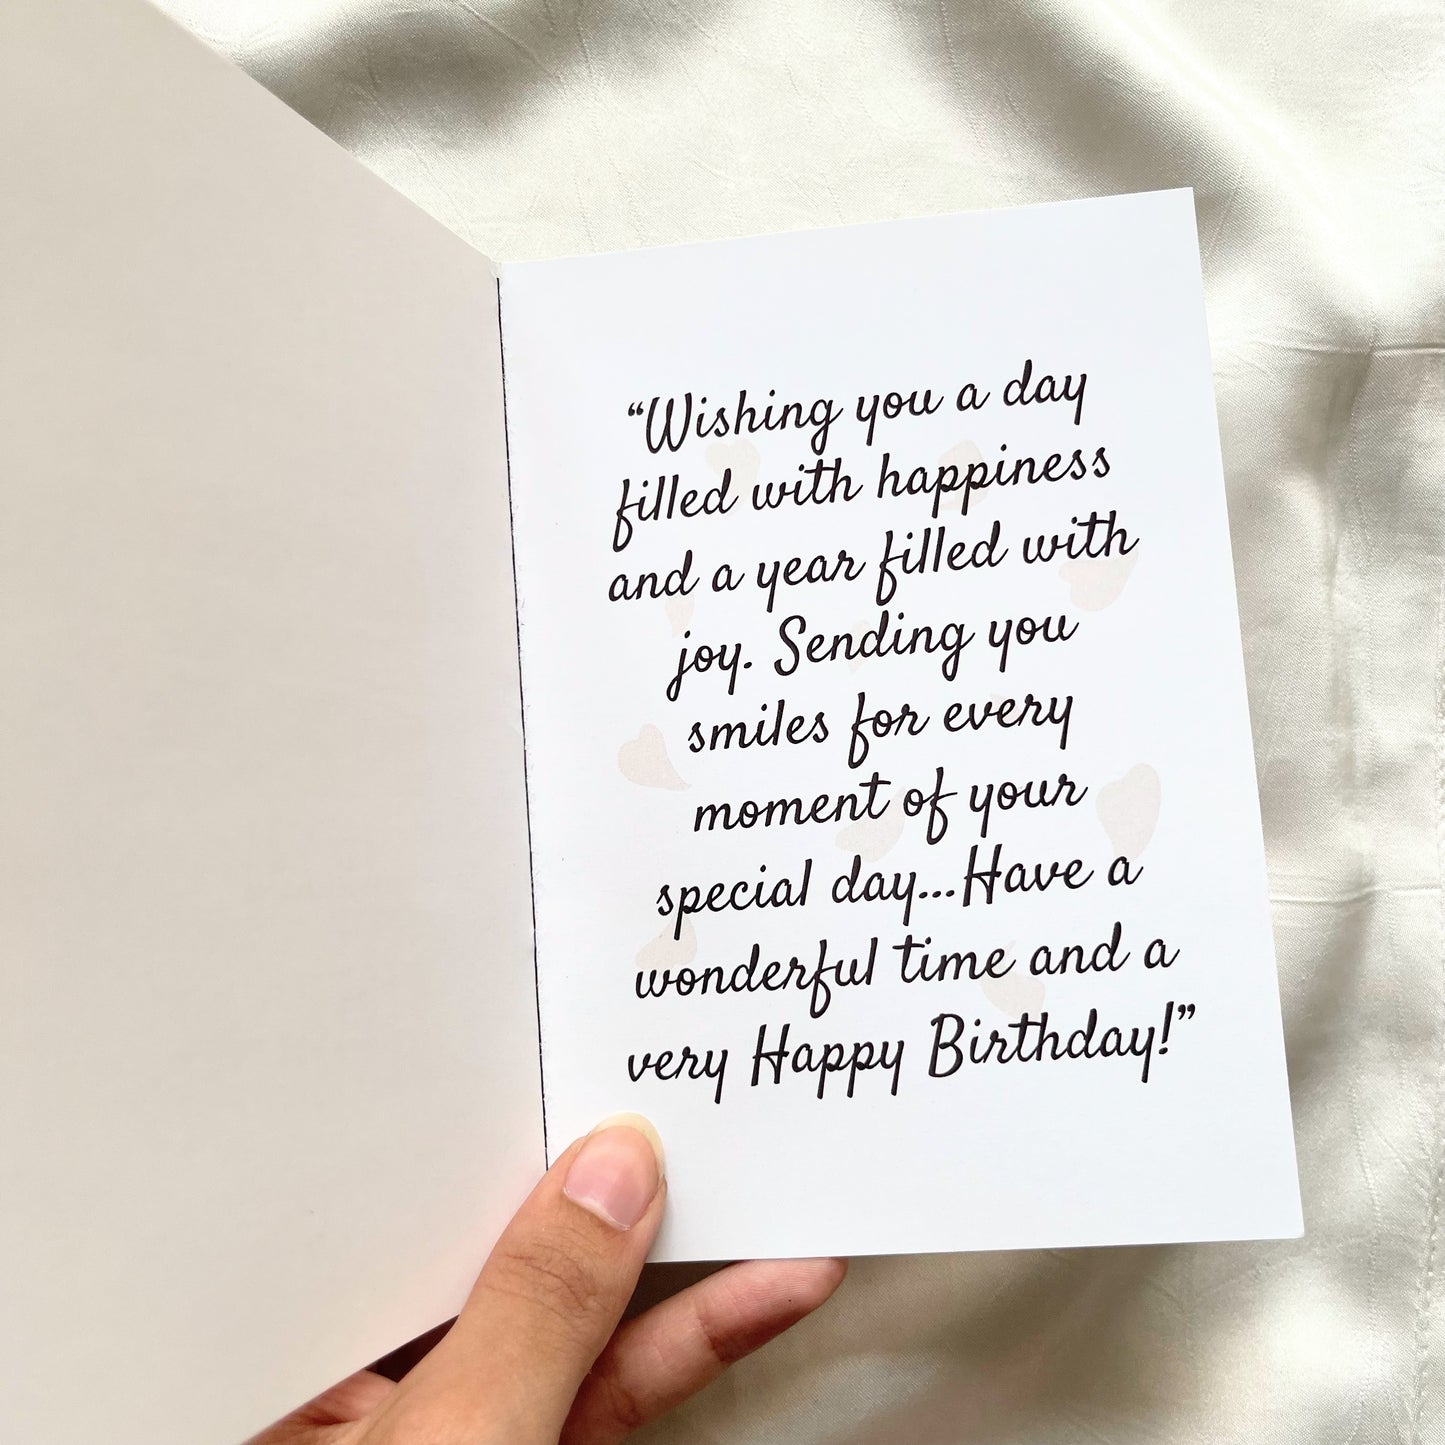 “Wishing you a day
filled with happiness
and a year filled with
joy. Sending you
smiles for every
moment of your
special day...Have a
wonderful time and a
very Happy Birthday!”